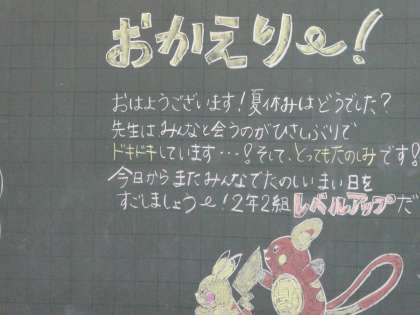 おかえり〜!
おはようございます!夏休みはどうでした?
先生はみんなと会うのがひさしぶりで
ドキドキしています…!そして、とってもたのしみです!
今日からまたみんなでたのしいまい日を
すごしましょう〜!2年2組レベルアップだ